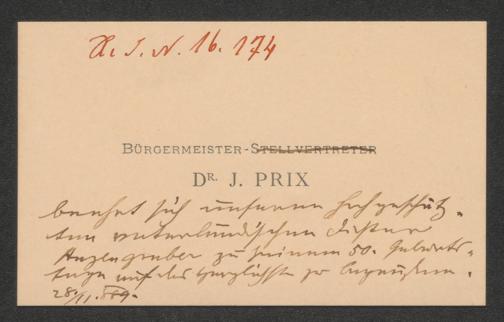 H. I. N. 16.174
BÜRGERMEISTER-STELLVERTRETER
DR. J. PRIX
beehrt sich unseren hochgeschätz-
ten vaterländischen Dichter
Anzengruber zu seinem 50. Geburts-
tage auf das herzlichste zu beglückwünschen.
28./11. 889.